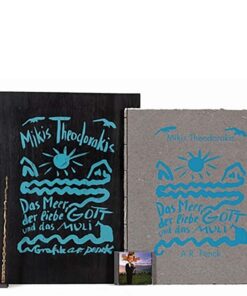 Mikis Theodorakis
Das Meer,
der liebe GOTT
und das MULI
Grafik a.r. penck
Mikis Theodorakis
Das Meer,
der liebe GOTT
und das MULI
A.R. Penck